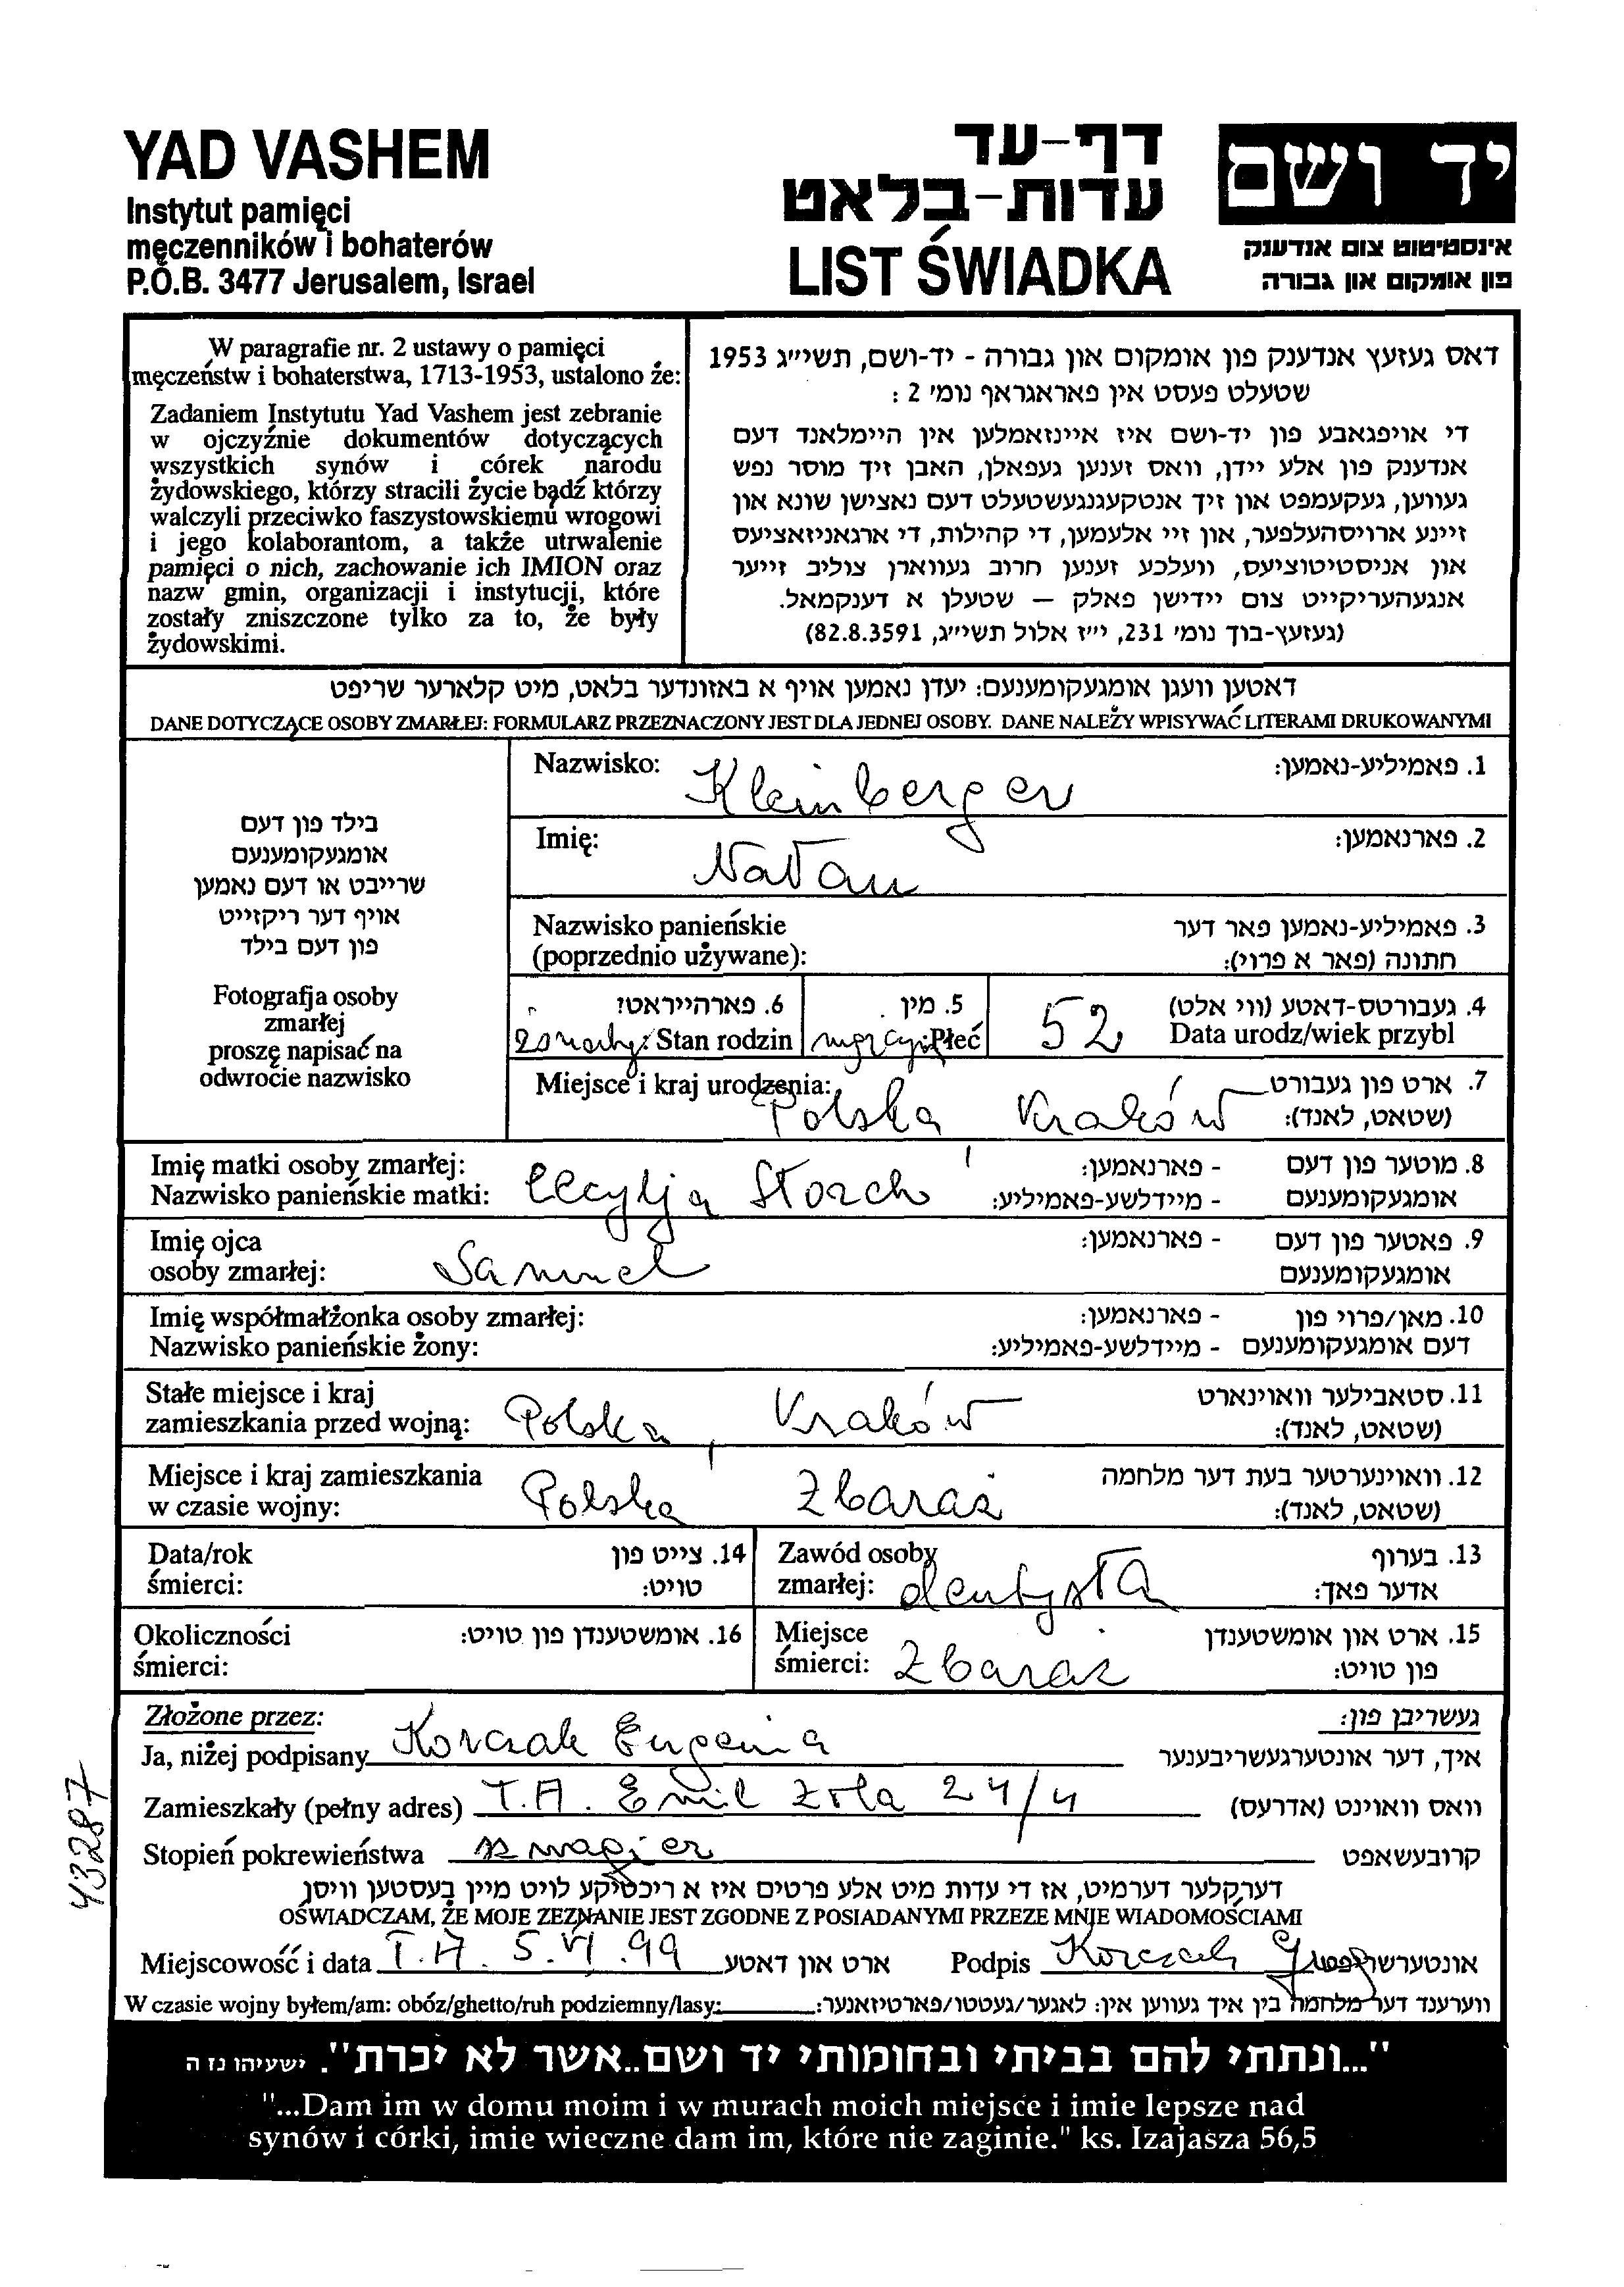 YAD VASHEM
Instytut pamięci
męczenników i bohaterów
P.O.B. 3477 Jerusalem, Israel
דף-עד
עדות-בלאט
LIST ŚWIADKA
יד ושם
אינסטיטוט צום אנדענק
פון אומקום און גבורה
W paragrafie nr. 2 ustawy o pamięci
męczeństw i bohaterstwa, 1713-1953, ustalono że:
Zadaniem Instytutu Yad Vashem jest zebranie
w ojczyźnie dokumentów dotyczących
wszystkich synów i córek narodu
żydowskiego, którzy stracili życie bądź którzy
walczyli przeciwko faszystowskiemu wrogowi
i jego kolaborantom, a także utrwalenie
pamięci o nich, zachowanie ich IMION oraz
nazw gmin, organizacji i instytucji, które
zostały zniszczone tylko za to, że były
żydowskimi.
דאס געזעץ אנדענק פון אומקום און גבורה - יד-ושם, תשי״ג 1953
שטעלט פעסט אין פאראגראף נומ׳ 2 :
די אויפגאבע פון יד-ושם איז איינזאמלען אין היימלאנד דעם
אנדענק פון אלע יידן, וואס זענען געפאלן, האבן זיך מוסר נפש
געווען, געקעמפט און זיך אנטקעגנגעשטעלט דעם נאצישן שונא און
זיינע ארויסהעלפער, און זיי אלעמען, די קהילות, די ארגאניזאציעס
און אניסטיטוציעס, וועלכע זענען חרוב געווארן צוליב זייער
אנגעהעריקייט צום יידישן פאלק – שטעלן א דענקמאל.
(געזעץ-בוך נומ׳ 231, י״ז אלול תשי״ג, 82.8.3591)
דאטען וועגן אומגעקומענעם: יעדן נאמען אויף א באזונדער בלאט, מיט קלארער שריפט
DANE DOTYCZĄCE OSOBY ZMARŁEJ: FORMULARZ PRZEZNACZONY JEST DLA JEDNEJ OSOBY. DANE NALEŻY WPISYWAĆ LITERAMI DRUKOWANYMI
בילד פון דעם
אומגעקומענעם
שרייבט או דעם נאמען
אויף דער ריקזייט
פון דעם בילד
Fotografja osoby
zmarłej
proszę napisać na
odwrocie nazwisko
Nazwisko: Kleinberger 1. פאמיליע-נאמען:
Imię: Natan 2. פארנאמען:
Nazwisko panieńskie 3. פאמיליע-נאמען פאר דער
(poprzednio używane): חתונה (פאר א פרוי):
6. פארהייראט? 5. מין 4. געבורטס-דאטע (ווי אלט)
żonaty: Stan rodzin mężczyz: Płeć 52 Data urodz/wiek przybl
Miejsce i kraj urodzenia: Polska Kraków 7. ארט פון געבורט
(שטאט, לאנד):
Imię matki osoby zmarłej: 8. מוטער פון דעם - פארנאמען:
Nazwisko panieńskie matki: Cecylja Storch אומגעקומענעם - מיידלשע-פאמיליע:
Imię ojca 9. פאטער פון דעם - פארנאמען:
osoby zmarłej: Samuel אומגעקומענעם
Imię współmałżonka osoby zmarłej: 10. מאן/פרוי פון - פארנאמען:
Nazwisko panieńskie żony: דעם אומגעקומענעם - מיידלשע-פאמיליע:
Stałe miejsce i kraj 11. סטאבילער וואוינארט
zamieszkania przed wojną: Polska, Kraków (שטאט, לאנד):
Miejsce i kraj zamieszkania 12. וואוינערטער בעת דער מלחמה
w czasie wojny: Polska Zbaraż (שטאט, לאנד):
Data/rok 14. צייט פון Zawód osoby 13. בערוף
śmierci: טויט: zmarłej: dentysta אדער פאך:
Okoliczności 16. אומשטענדן פון טויט: Miejsce 15. ארט און אומשטענדן
śmierci: śmierci: Zbaraż פון טויט:
Złożone przez: געשריבן פון:
Ja, niżej podpisany Korczak Eugenia איך, דער אונטערגעשריבענער
Zamieszkały (pełny adres) T.A. Emil Zola 24/4 וואס וואוינט (אדרעס)
Stopień pokrewieństwa szwagier קרובעשאפט
דערקלער דערמיט, אז די עדות מיט אלע פרטים איז א ריכטיקע לויט מיין בעסטען וויסן
OŚWIADCZAM, ŻE MOJE ZEZNANIE JEST ZGODNE Z POSIADANYMI PRZEZE MNIE WIADOMOŚCIAMI
Miejscowość i data T.A. 5.VI.99 ארט און דאטע Podpis Korczak אונטערשריפט
W czasie wojny byłem/am: obóz/ghetto/ruh podziemny/lasy: ווערענד דער מלחמה בין איך געווען אין: לאגער/געטטו/פארטיזאנער:
43287
"...ונתתי להם בביתי ובחומותי יד ושם..אשר לא יכרת". ישעיהו נז ה
"...Dam im w domu moim i w murach moich miejsce i imie lepsze nad
synów i córki, imie wieczne dam im, które nie zaginie." ks. Izajasza 56,5